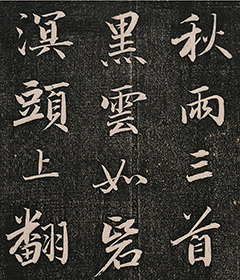 秋雨三首
黑雲如
溟頭上翻